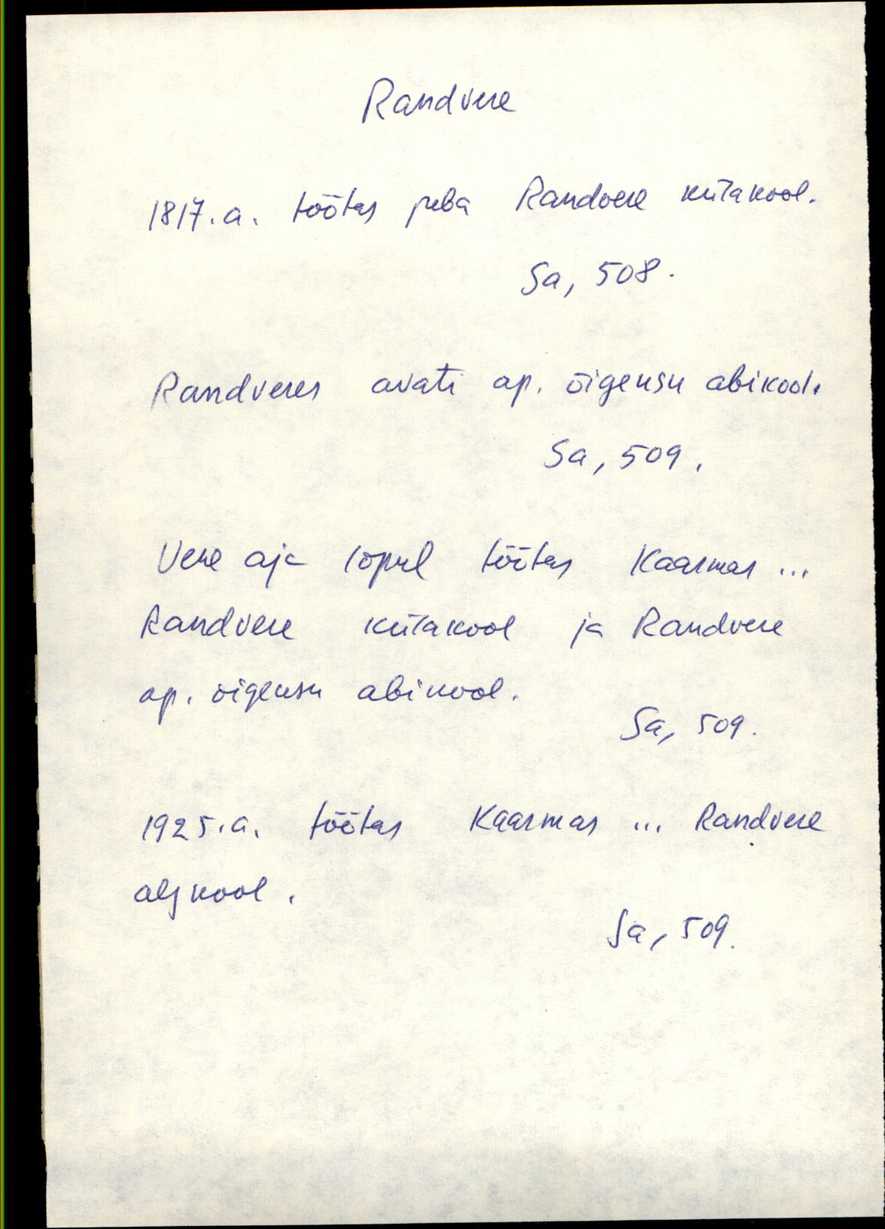 Randvere
1817.a. töötas juba Randvere külakool.
Sa, 508.
Randveres avati ap. õigeusu abikool.
Sa, 509.
Vene aja lõpul töötas Kaarmas ...
Randvere külakool ja Randvere
ap. õigeusu abikool.
Sa, 509.
1925.a. töötas Kaarmas ... Randvere
algkool.
Sa, 509.